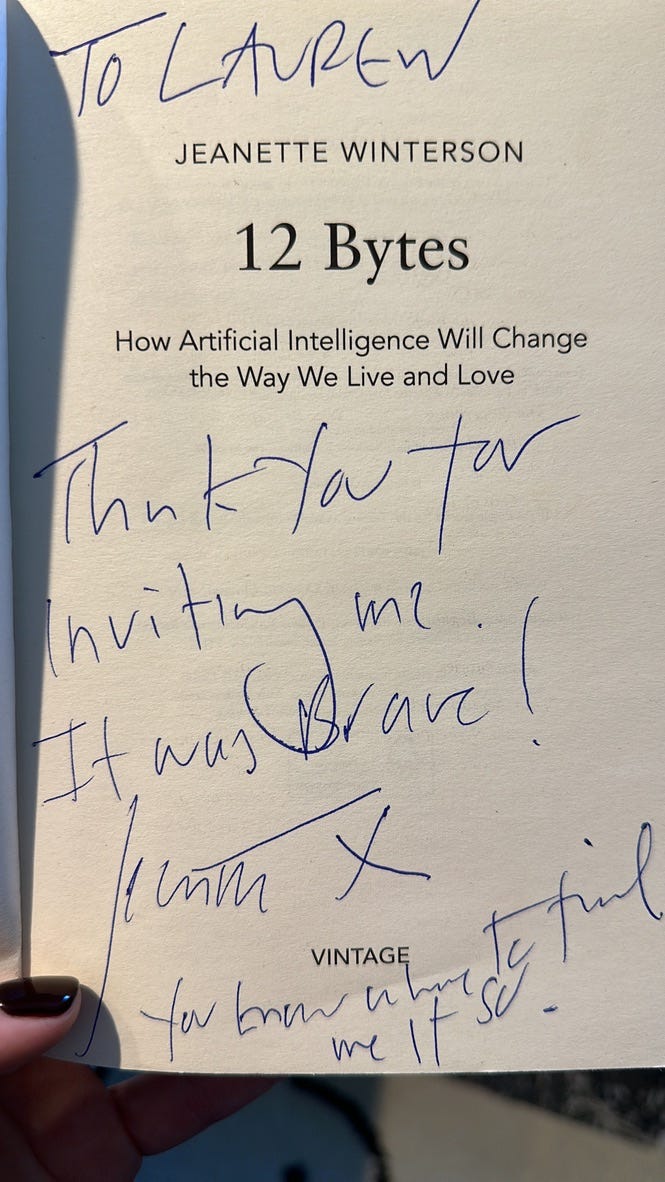 TO LAUREN
JEANETTE WINTERSON
12 Bytes
How Artificial Intelligence Will Change
the Way We Live and Love
Thank You for
Inviting me.
It was Brave!
X
VINTAGE
You know where to find
me If so.